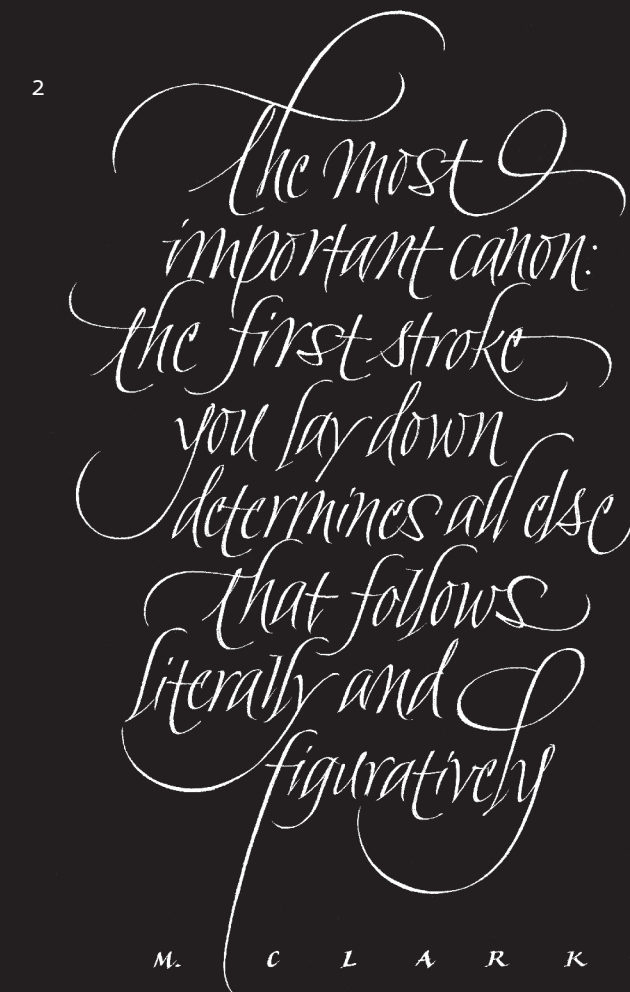 2
the most
important canon:
the first stroke
you lay down
determines all else
that follows
literally and
figuratively
M. CLARK